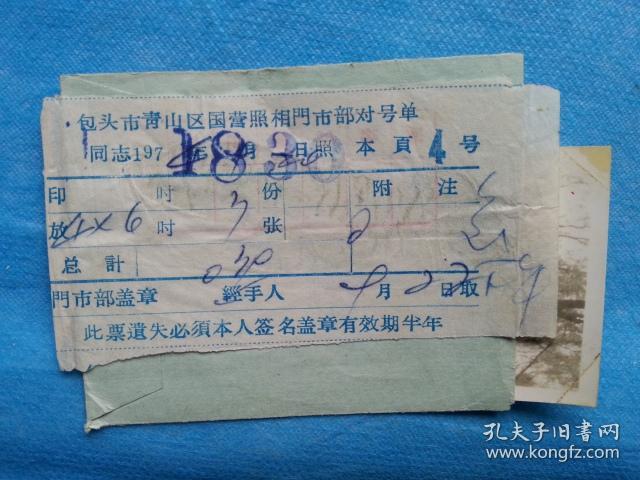 包头市青山区国营照相門市部对号单
同志197 年 月 日照 本頁4号
印 吋 份 附注
放 x6 吋 张
总計 030
門市部盖章 經手人 9月22日取
此票遺失必須本人签名盖章有效期半年
孔夫子旧书网
www.kongfz.com